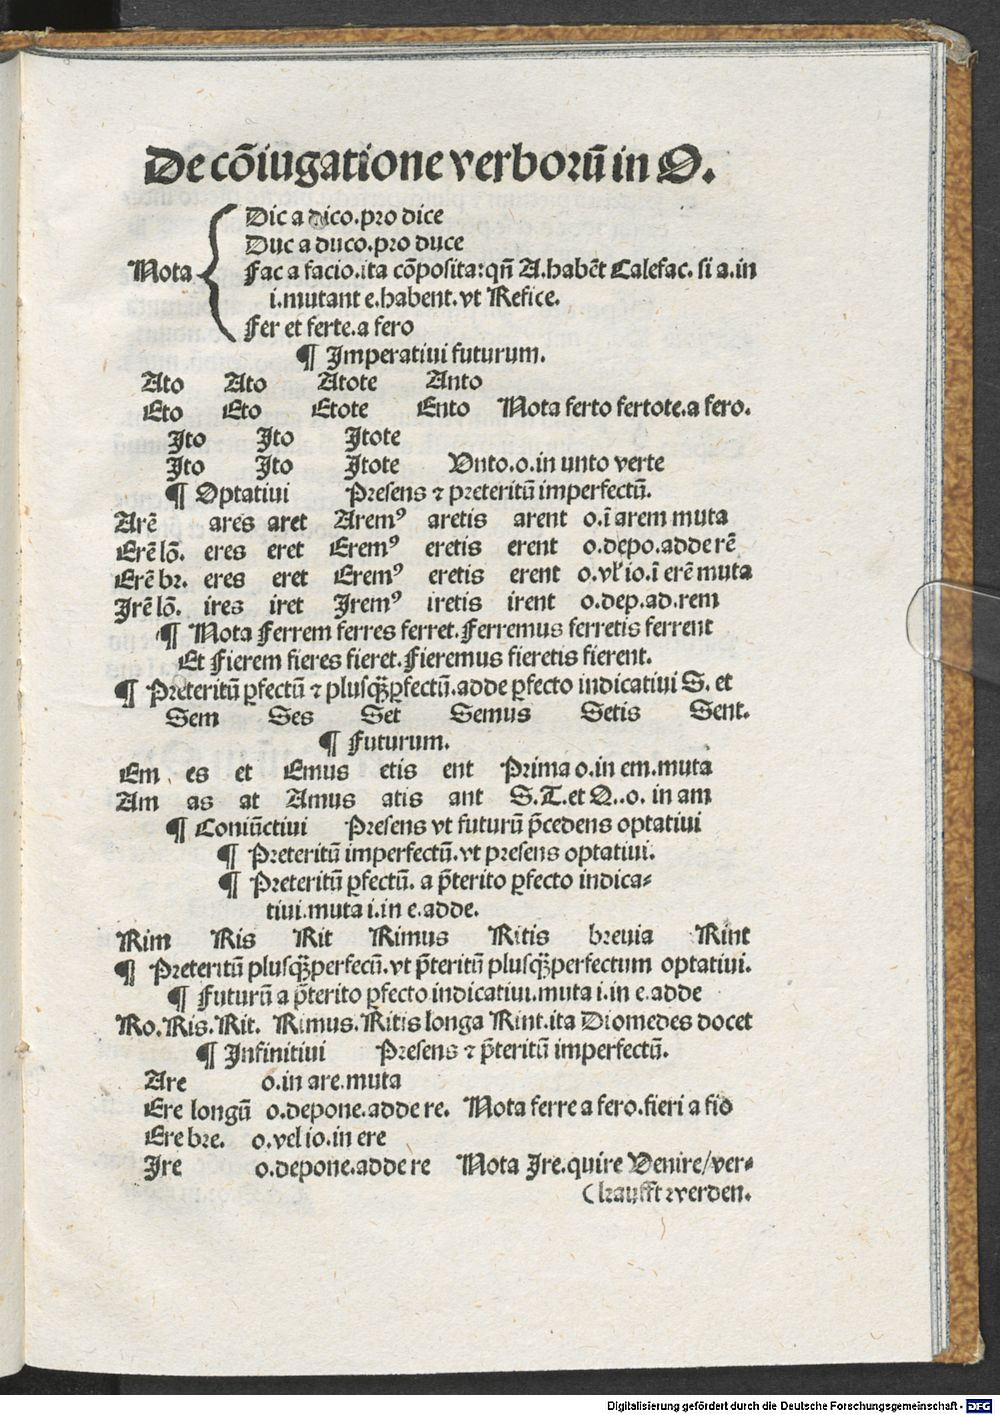 De cõiugatione verborũ in O.
Dic a dico.pro dice
Duc a duco.pro duce
Nota Fac a facio.ita cõposita:qñ A.habẽt Calefac. si a.in
i.mutant e.habent.vt Refice.
Fer et ferte.a fero
¶ Imperatiui futurum.
Ato Ato Atote Anto
Eto Eto Etote Ento Nota ferto fertote.a fero.
Ito Ito Itote
Ito Ito Itote Unto.o.in unto verte
¶ Optatiui Presens ⁊ preteritũ imperfectũ.
Arẽ ares aret Aremꝰ aretis arent o.ĩ arem muta
Erẽ lõ. eres eret Eremꝰ eretis erent o.depo.adde rẽ
Erẽ br. eres eret Eremꝰ eretis erent o.vl' io.ĩ erẽ muta
Irẽ lõ. ires iret Iremꝰ iretis irent o.dep.ad.rem
¶ Nota Ferrem ferres ferret.Ferremus ferretis ferrent
Et Fierem fieres fieret.Fieremus fieretis fierent.
¶ Preteritũ ꝑfectũ ⁊ plusq̃ꝑfectũ.adde ꝑfecto indicatiui S. et
Sem Ses Set Semus Setis Sent.
¶ Futurum.
Em es et Emus etis ent Prima o.in em.muta
Am as at Amus atis ant S.T.et Q..o. in am
¶ Coniũctiui Presens vt futurũ p̃cedens optatiui
¶ Preteritũ imperfectũ.vt presens optatiui.
¶ Preteritũ ꝑfectũ. a p̃terito ꝑfecto indica-
tiui.muta i.in e.adde.
Rim Ris Rit Rimus Ritis breuia Rint
¶ Preteritũ plusq̃perfecũ.vt p̃teritũ plusq̃perfectum optatiui.
¶ Futurũ a p̃terito ꝑfecto indicatiui.muta i.in e.adde
Ro.Ris.Rit. Rimus.Ritis longa Rint.ita Diomedes docet
¶ Infinitiui Presens ⁊ p̃teritũ imperfectũ.
Are o.in are.muta
Ere longũ o.depone.adde re. Nota ferre a fero.fieri a fio
Ere bre. o.vel io.in ere
Ire o.depone.adde re Nota Ire.quire Venire/ver-
(kaufft werden.
Digitalisierung gefördert durch die Deutsche Forschungsgemeinschaft - DFG